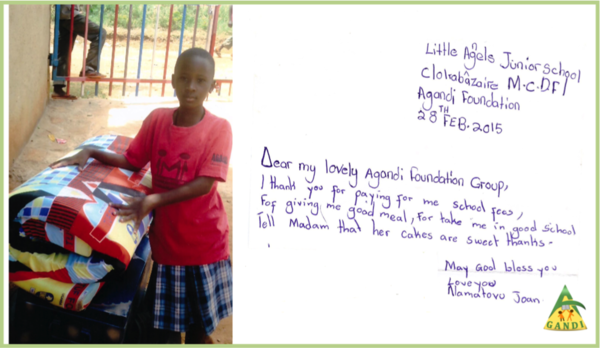 Little Agels Junior school
Clo kabazaire M.C.DFI
Agandi Foundation
28TH FEB. 2015
Dear my lovely Agandi Foundation Group,
I thank you for paying for me school fees,
For giving me good meal, for take me in good school
Tell Madam that her cakes are sweet thanks.
May God bless you
Love you
Namatovu Joan
AGANDI